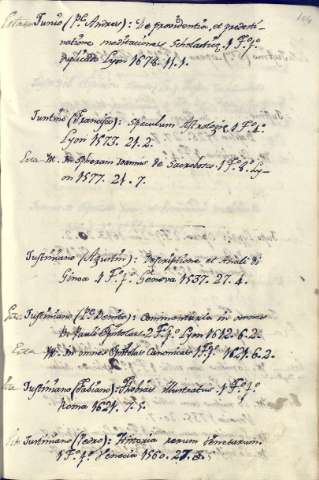 Junio (P.e Andres): De providentia, et predesti-
natione meditationes Scholastice, 1 T. f.o
duplicado Lyon 1678. 11. 1.
Juntino (Francisco): Speculum Astrologie, 1 T. 4.
Lyon 1573. 21. 2.
In Spheram Ioannis de Sacrobosco. 1 T. 8. Ly-
on 1577. 21. 7.
Justiniano (Agustin): Descriptione et Anali di
Genoa. 1 T. f.o Genova 1537. 27. 4.
Justiniano (P.e Benito): Commentaria in omnes
D. Pauli Epistolas. 2 T. f.o Lyon 1612. 6. 2.
In omnes Epistolas Canonicas 1 T. f.o 1621. 6. 2.
Justiniano (Fabiano): Thobias illustratus. 1 T. f.o
Roma 1621. 7. 5.
Justiniano (Pedro): Historia rerum Venetarum.
1 T. f.o Venecia 1560. 27. 5.